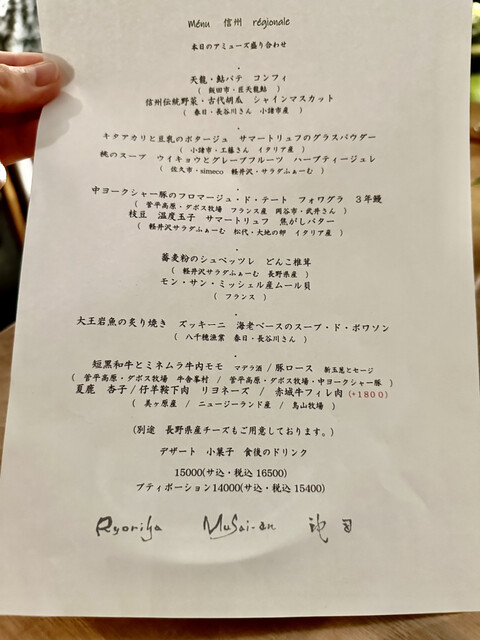 Ménu 信州 régionale
本日のアミューズ盛り合わせ
・
天龍・鮎パテ コンフィ
( 飯田市・匠天龍鮎 )
信州伝統野菜・古代胡瓜 シャインマスカット
( 春日・長谷川さん 小諸市産 )
・
キタアカリと豆乳のポタージュ サマートリュフのグラスパウダー
( 小諸市・工藤さん イタリア産 )
桃のスープ ウイキョウとグレープフルーツ ハーブティージュレ
( 佐久市・simeco 軽井沢・サラダふぁーむ )
・
中ヨークシャー豚のフロマージュ・ド・テート フォワグラ 3年鰻
( 菅平高原・ダボス牧場 フランス産 岡谷市・武井さん )
枝豆 温度玉子 サマートリュフ 焦がしバター
( 軽井沢サラダふぁーむ 松代・大地の卵 イタリア産 )
・
蕎麦粉のシュペッツレ どんこ椎茸
( 軽井沢サラダふぁーむ 長野県産 )
モン・サン・ミッシェル産ムール貝
( フランス )
・
大王岩魚の炙り焼き ズッキーニ 海老ベースのスープ・ド・ポワソン
( 八千穂漁業 春日・長谷川さん )
・
短黒和牛とミネムラ牛内モモ マデラ酒 / 豚ロース 新玉葱とセージ
( 菅平高原・ダボス牧場 牛舎峯村 / 菅平高原・ダボス牧場・中ヨークシャー豚 )
夏鹿 杏子 / 仔羊鞍下肉 リヨネーズ / 赤城牛フィレ肉 (+1800)
( 美ヶ原産 / ニュージーランド産 / 鳥山牧場 )
(別途 長野県産チーズもご用意しております。)
デザート 小菓子 食後のドリンク
15000(サ込・税込 16500)
プティポーション14000(サ込・税込 15400)
Ryoriya MuSai-an